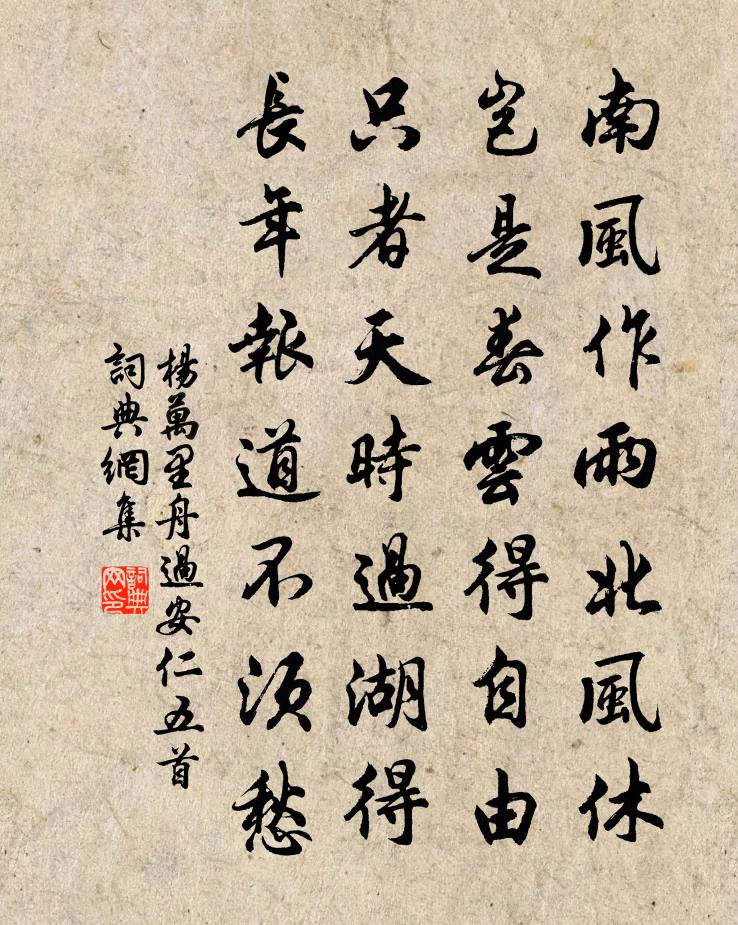 南風作雨北風休
豈是春雲得自由
只者天時過湖得
長年報道不須愁
楊萬里舟過安仁五首
詞典網集
詞典网印